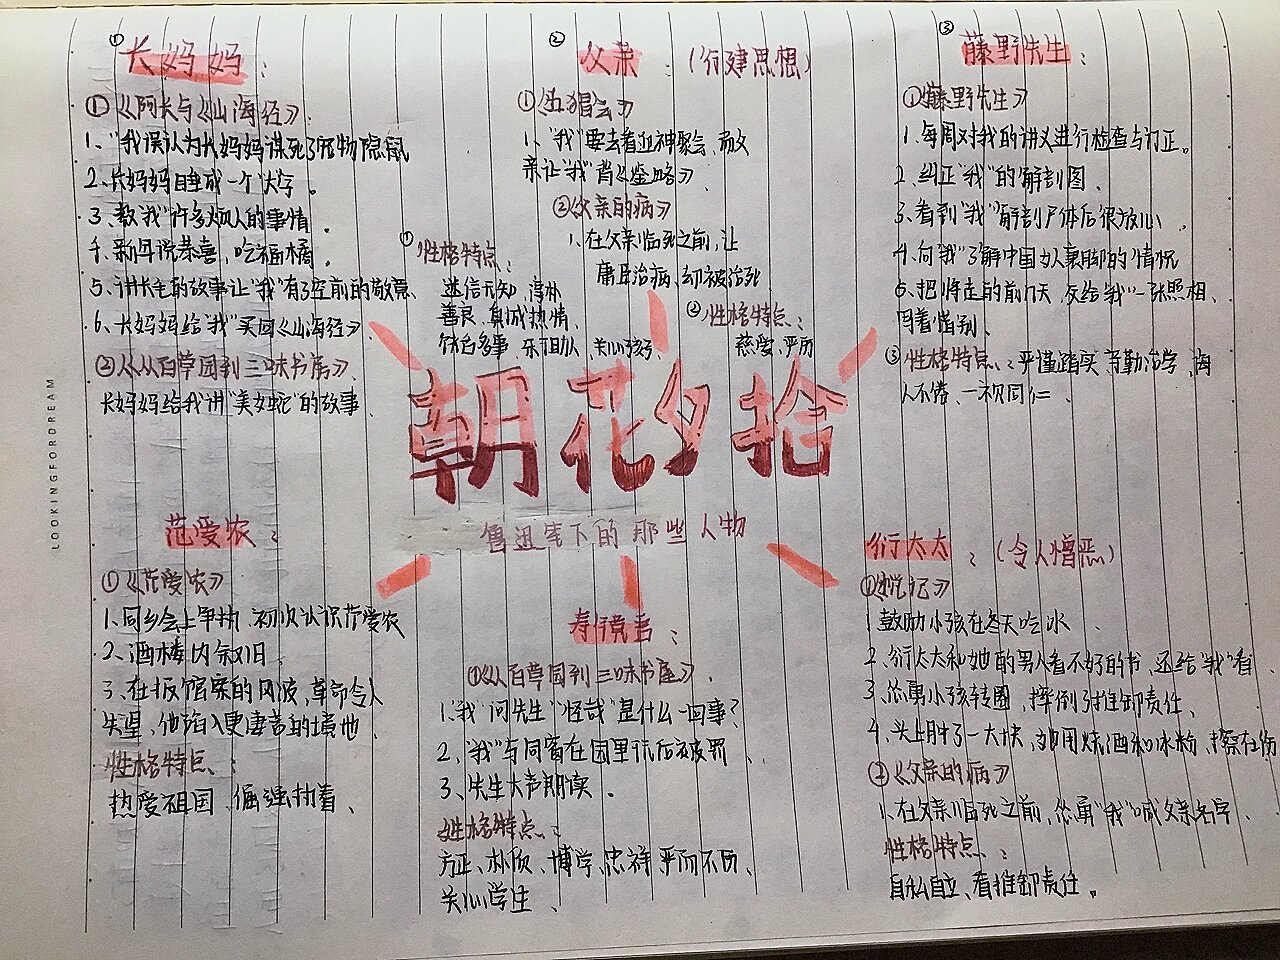 ①
长妈妈：
①《阿长与《山海经》》.
1、"我误认为长妈妈谋死了宠物隐鼠
2、长妈妈睡成一个"大"字。
3、教"我"许多烦人的事情。
4、新年说恭喜，吃福橘。
5、讲长毛的故事让"我"有了空前的敬意、
6、长妈妈给"我"买回《山海经》
②《从百草园到三味书屋》、
长妈妈给我讲"美女蛇"的故事
①
性格特点：
迷信无知、淳朴
善良、真诚热情、
饶舌多事、乐于助人、关心孩子、
②
父亲：（封建思想）
①《五猖会》
1、"我"要去看迎神赛会、而父
亲让"我"背《鉴略》、
②《父亲的病》
1、在父亲临死之前，让
庸医治病、却被治死
②性格特点：
慈爱、严厉
③
藤野先生：
①《藤野先生》
1、每周对我的讲义进行检查与订正。
2、纠正"我"的解剖图、
3、看到"我"解剖尸体后很放心、
4、向"我"了解中国女人裹脚的情况
5、把将走的前几天，交给"我"一张照相、
写着惜别、
③性格特点：严谨踏实、辛勤治学、诲
人不倦、一视同仁、
朝花夕拾
鲁迅笔下的那些人物
范爱农：
①《范爱农》
1、同乡会上争执、初次认识范爱农
2、酒楼内叙旧、
3、在报馆案的风波，革命令人
失望、他陷入更凄苦的境地、
性格特点：
热爱祖国、倔强执着、
寿镜吾：
①《从百草园到三味书屋》、
1、"我"问先生"怪哉"是什么一回事？
2、"我"与同窗在园里玩后被罚、
3、先生大声朗读、
性格特点：
方正、朴质、博学、慈祥、严而不厉、
关心学生、
衍太太：（令人憎恶）
①《琐记》
鼓励小孩在冬天吃冰、
2、衍太太和她的男人看不好的书，还给"我"看
3、怂恿小孩转圈，摔倒了推卸责任、
4、头上肿了一大块，却用烧酒和水粉、擦在伤
②《父亲的病》
1、在父亲临死之前，怂恿"我"喊父亲名字、
性格特点：
自私自立、看推卸责任。
LOOKINGFORDREAM